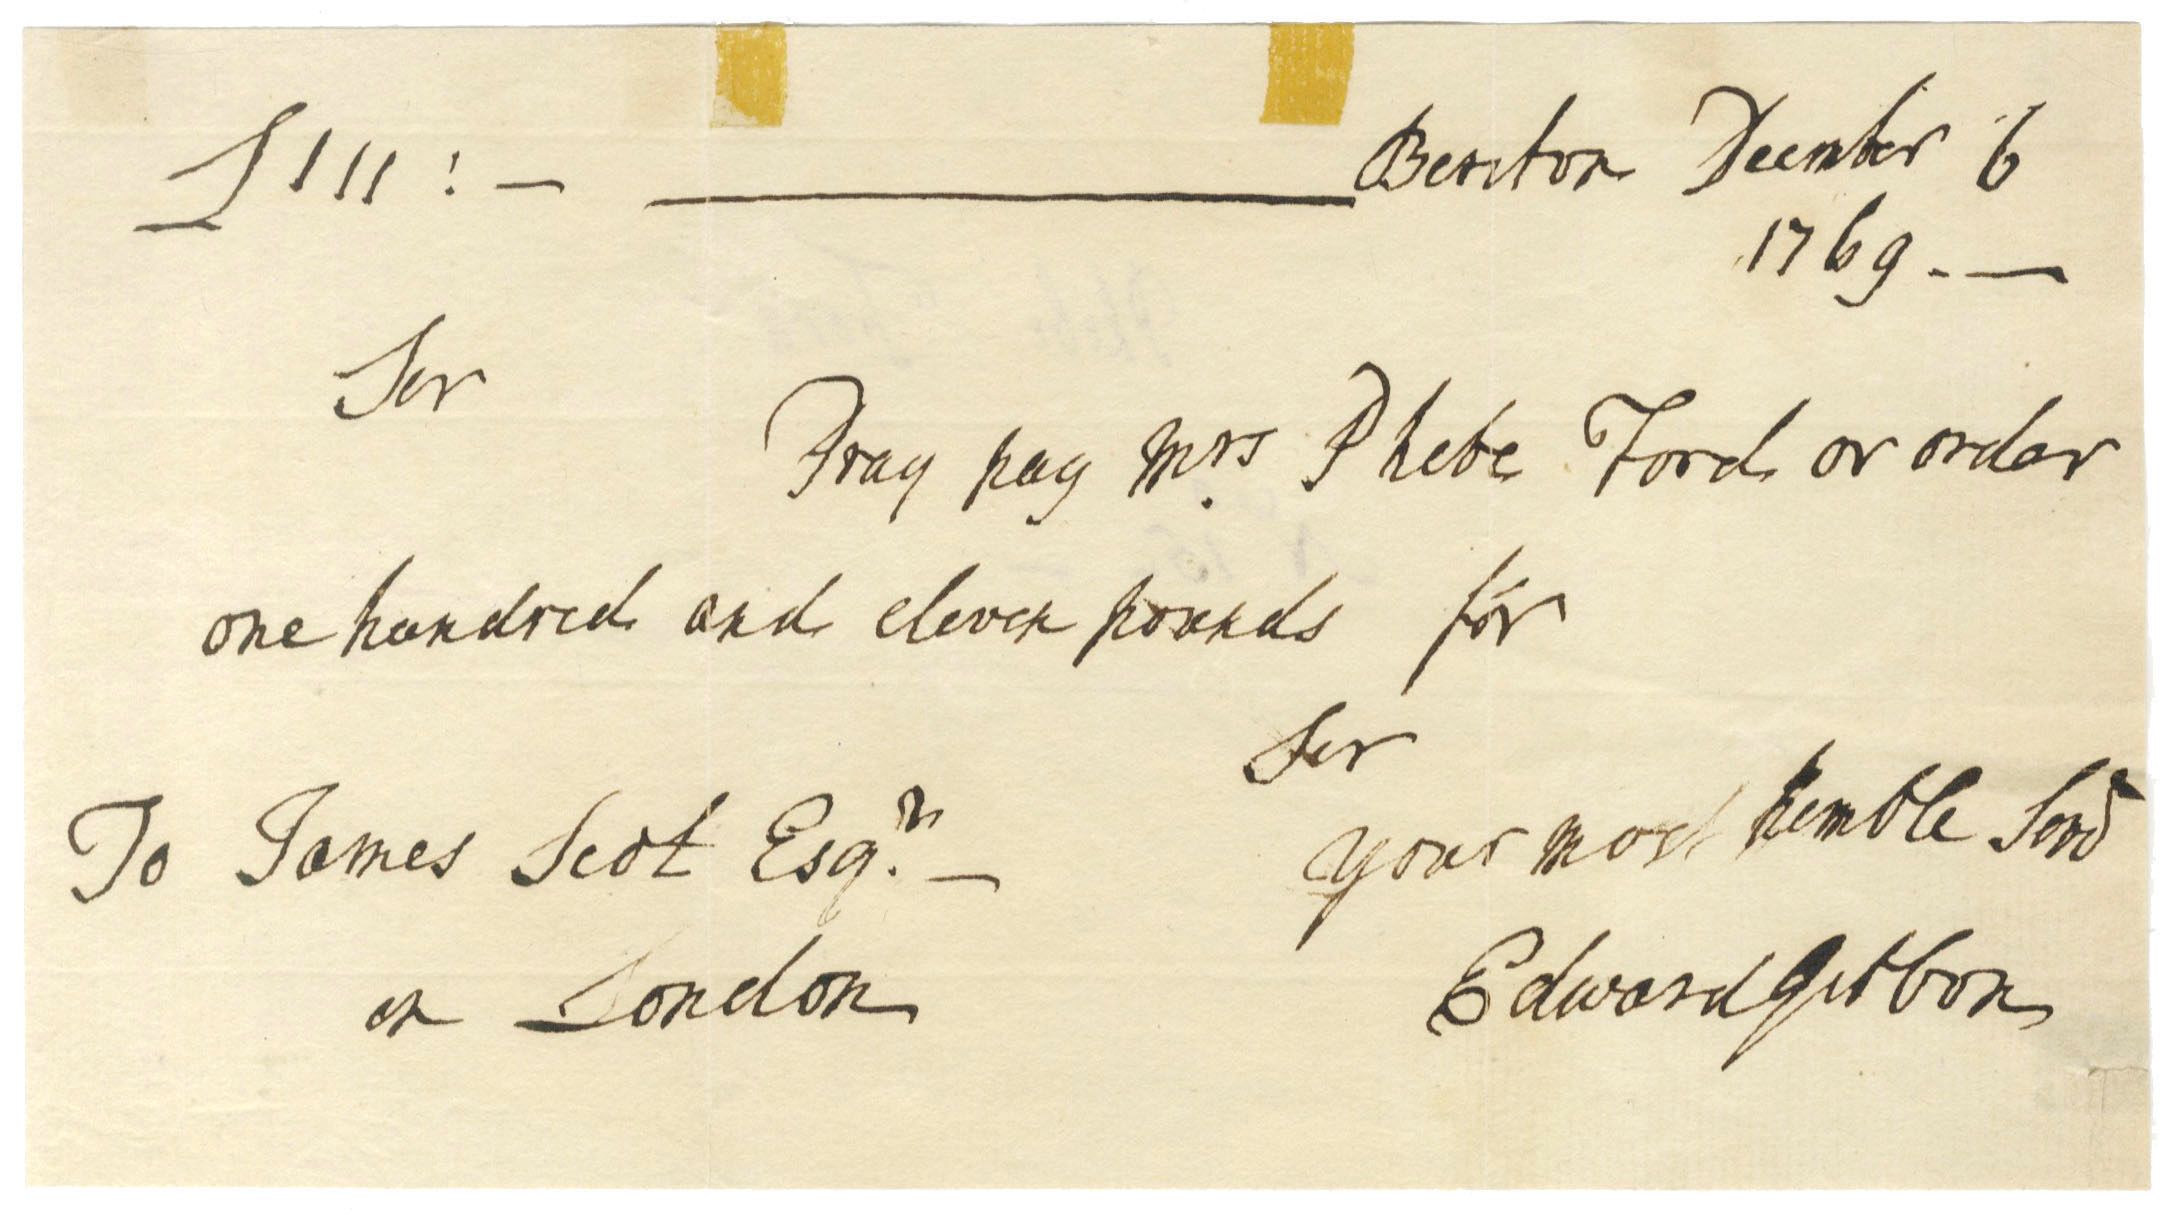 £111: — Beriton December 6
1769. —
Sir
Pray pay Mrs. Phebe Ford or order
one hundred and eleven pounds for
Sir
To James Scot Esqr. — your most humble Servt
in London Edward Gibbon